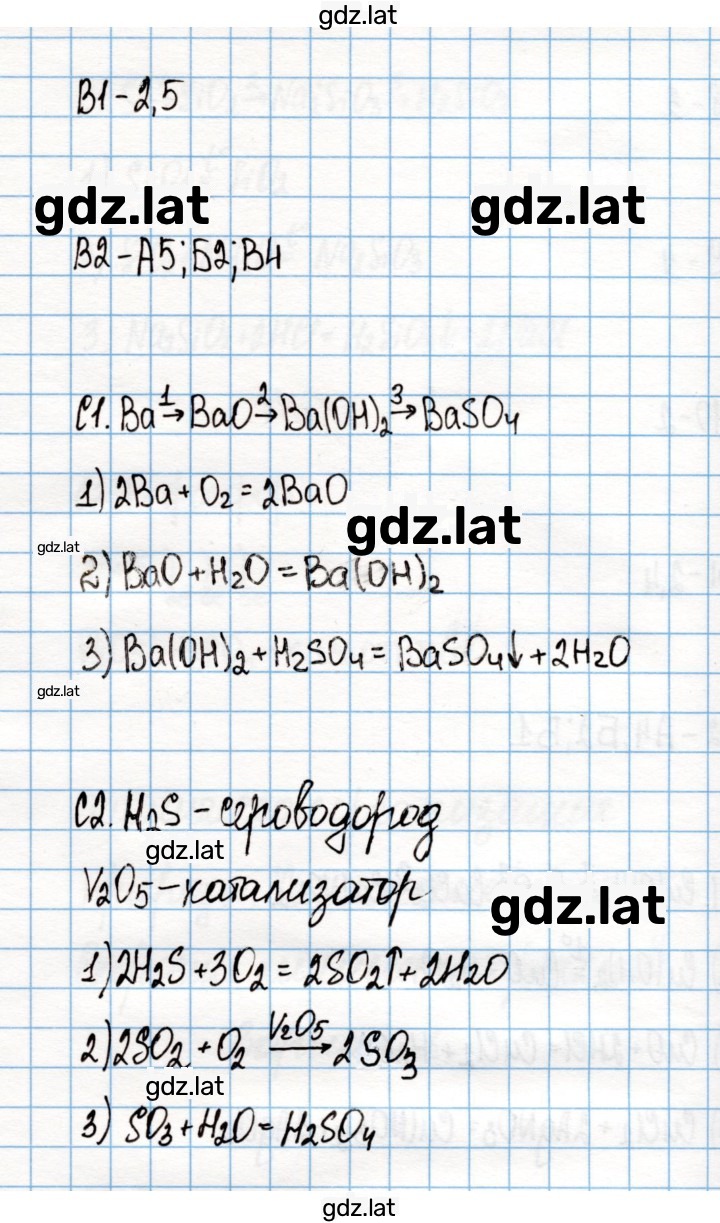 gdz.lat
В1-2,5
gdz.lat gdz.lat
В2-А5;Б2;В4
С1. Ba →¹ BaO →² Ba(OH)₂ →³ BaSO₄
1) 2Ba + O₂ = 2BaO
gdz.lat
gdz.lat
2) BaO + H₂O = Ba(OH)₂
3) Ba(OH)₂ + H₂SO₄ = BaSO₄↓ + 2H₂O
gdz.lat
С2. H₂S - сероводород
gdz.lat
V₂O₅ - катализатор
gdz.lat
1) 2H₂S + 3O₂ = 2SO₂↑ + 2H₂O
2) 2SO₂ + O₂ V₂O₅→ 2SO₃
gdz.lat
3) SO₃ + H₂O = H₂SO₄
gdz.lat